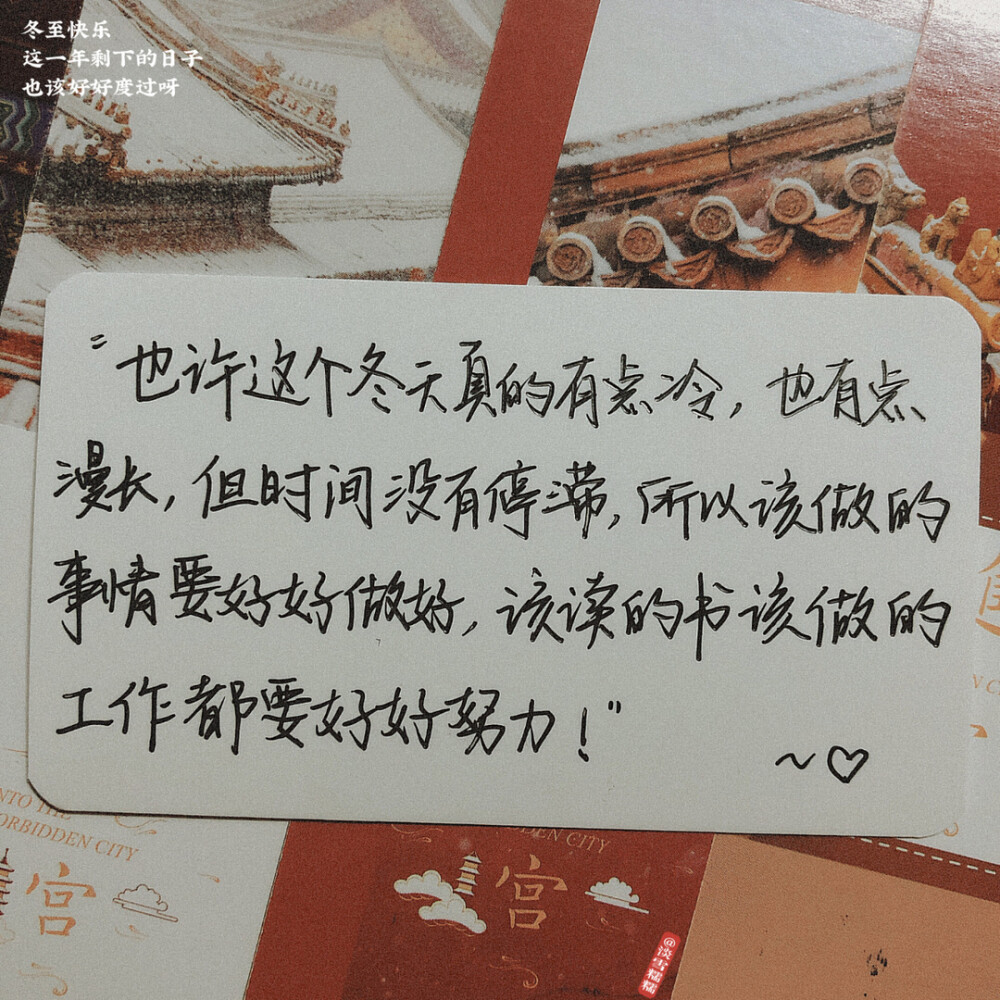 冬至快乐
这一年剩下的日子
也该好好度过呀
"也许这个冬天真的有点冷，也有点
漫长，但时间没有停滞，所以该做的
事情要好好做好，该读的书该做的
工作都要好好努力！"
~♡
INTO THE
FORBIDDEN CITY
宫
DEN CITY
宫
@淡雪糯糯